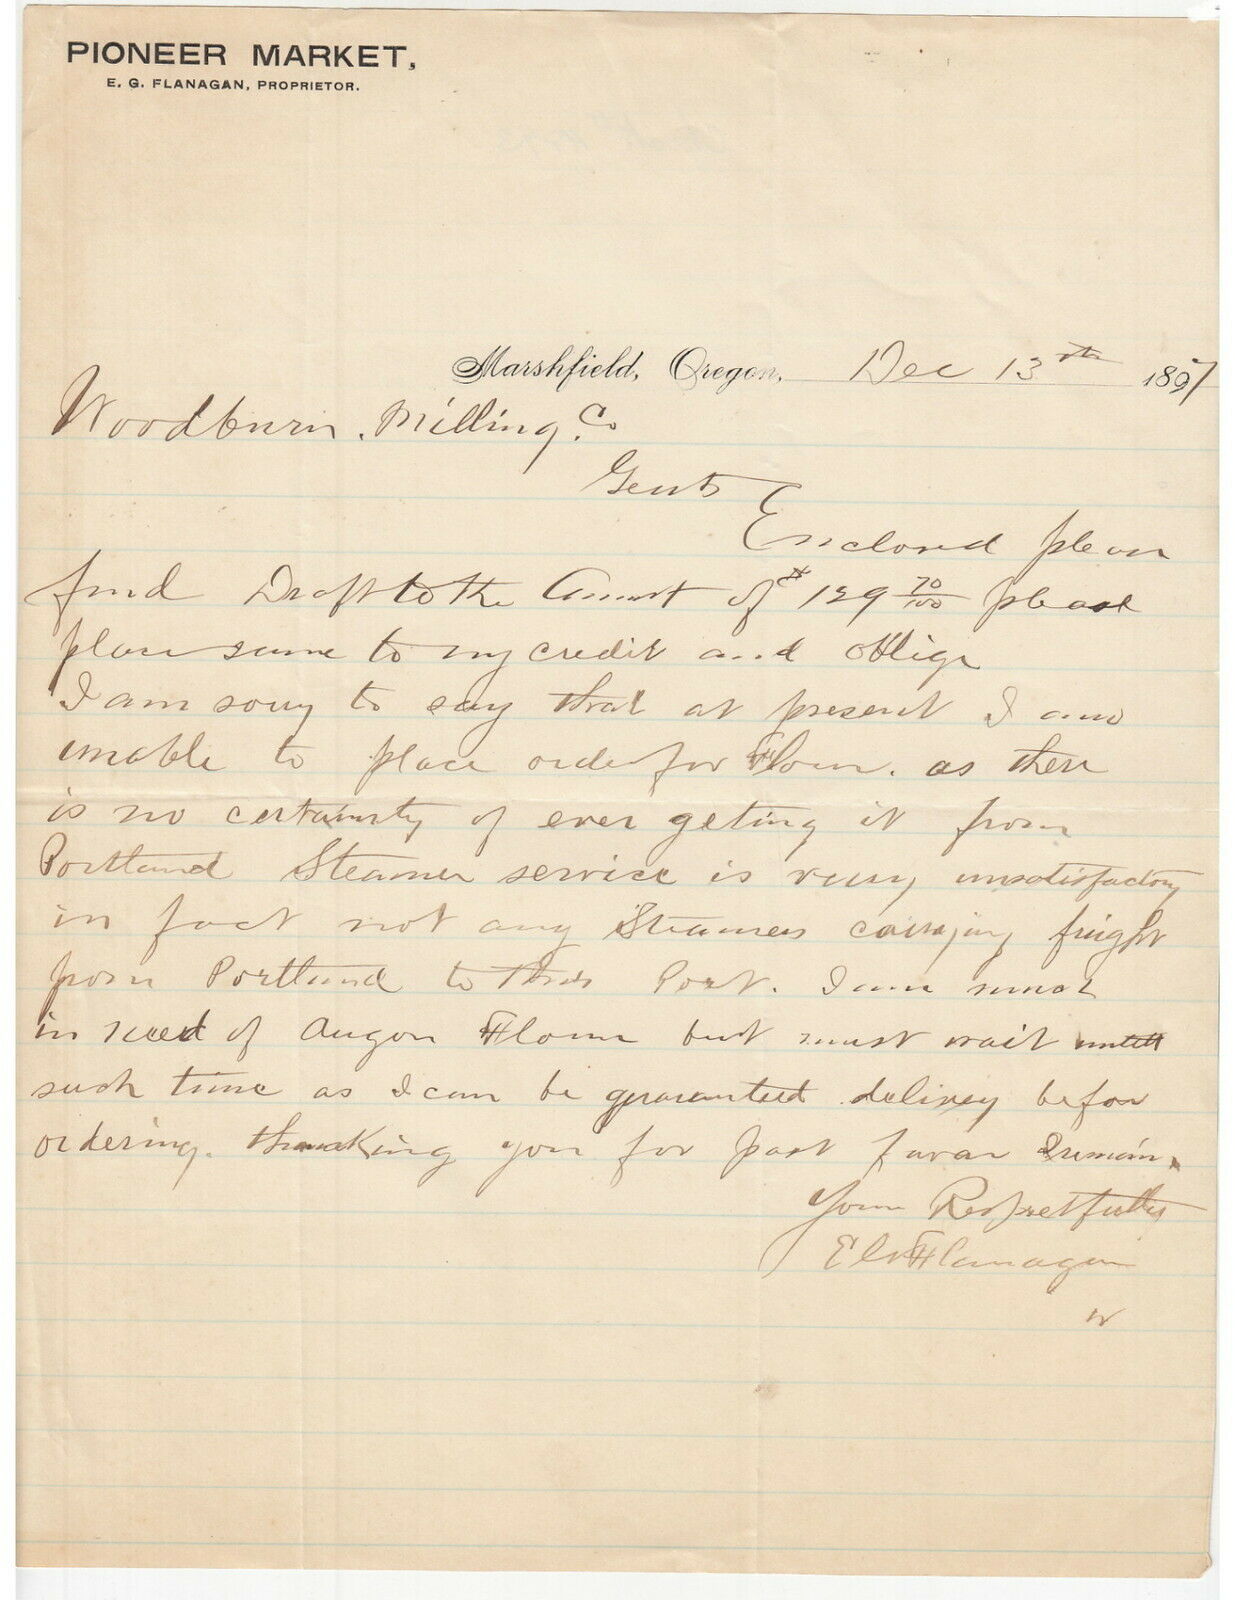 PIONEER MARKET,
E. G. FLANAGAN, PROPRIETOR.
Marshfield, Oregon, Dec 13th 1897
Woodburn. Milling. Co
Gents
Enclosed pleas
find Draft to the Amount of $129 70/100 please
place same to my credit and oblige
I am sorry to say that at present I am
unable to place order for Flour. as there
is no certainty of ever geting it from
Portland Steamer service is very unsatisfactory
in fact not any Steamers carrying freight
from Portland to this Port. I am much
in need of Flour but must wait untill
such time as I can be guaranteed delivey before
ordering. thanking you for past favor I remain.
Your Respectfully
E G Flanagan